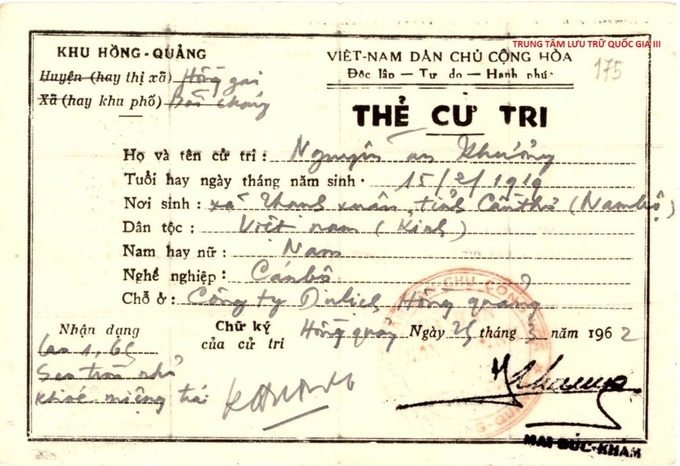 TRUNG TÂM LƯU TRỮ QUỐC GIA III
KHU HỒNG-QUẢNG
Huyện (hay thị xã) Hồng gai
Xã (hay khu phố)
VIỆT-NAM DÂN CHỦ CỘNG HÒA
Độc lập — Tự do — Hạnh phúc
175
THẺ CỬ TRI
Họ và tên cử tri: Nguyễn an Khương
Tuổi hay ngày tháng năm sinh: 15/2/1919
Nơi sinh: xã Thạnh xuân, tỉnh Cần thơ (Nam bộ)
Dân tộc: Việt nam (Kinh)
Nam hay nữ: Nam
Nghề nghiệp: Cán bộ
Chỗ ở: Công ty Du lịch Hồng quảng
Nhận dạng
Cao 1,65
Sẹo tròn nhỏ
khoé miệng trái
Chữ ký
của cử tri
Hồng quảng Ngày 25 tháng 3 năm 1962
MAI ĐỨC-KHÁM